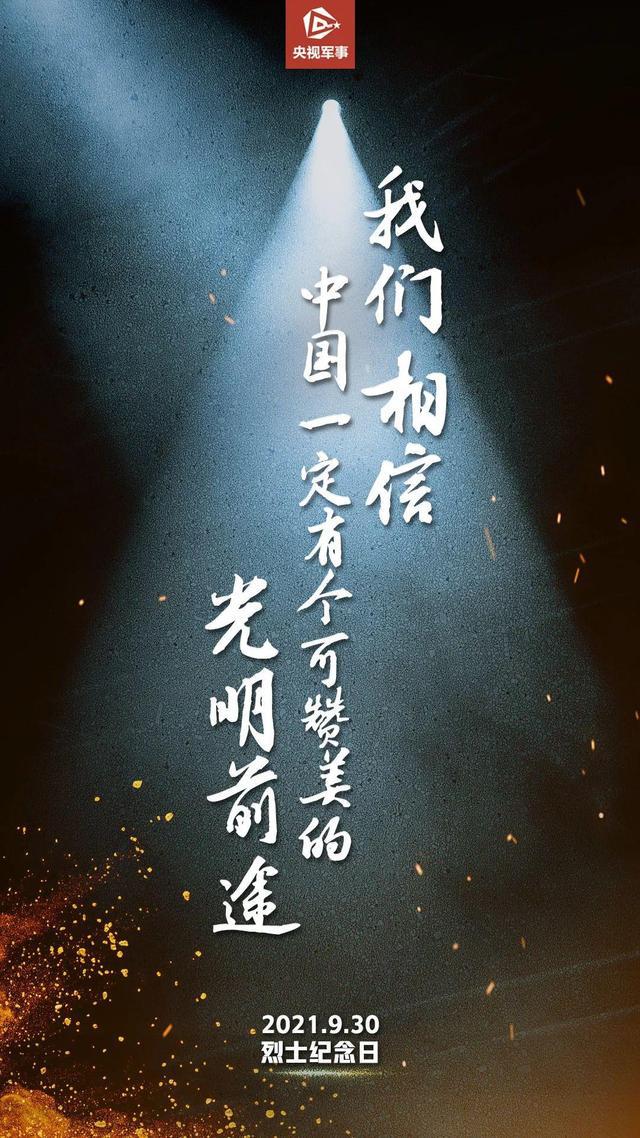 央视军事
我们相信
中国一定有个可赞美的
光明前途
2021.9.30
烈士纪念日